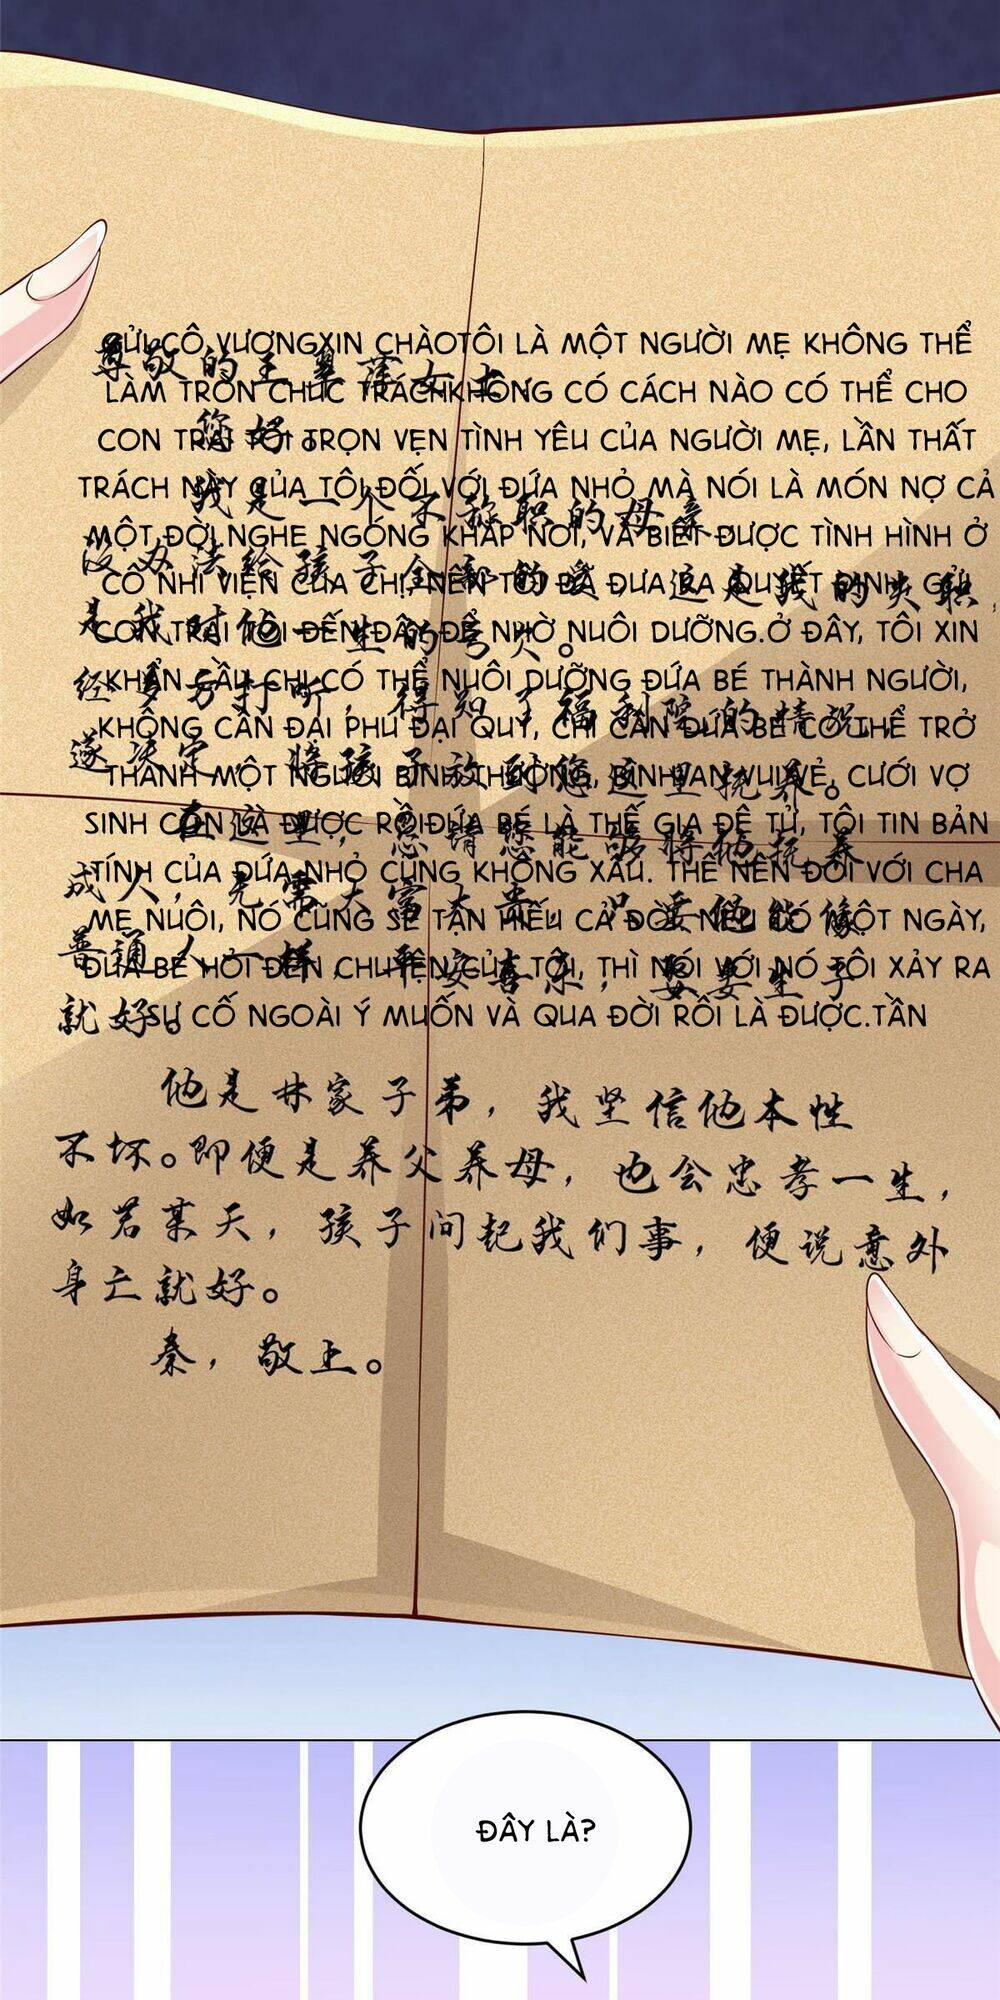 GỬI CÔ VƯƠNGXIN CHÀOTÔI LÀ MỘT NGƯỜI MẸ KHÔNG THỂ
LÀM TRÒN CHỨC TRÁCHKHÔNG CÓ CÁCH NÀO CÓ THỂ CHO
CON TRAI TÔI TRỌN VẸN TÌNH YÊU CỦA NGƯỜI MẸ, LẦN THẤT
TRÁCH NÀY CỦA TÔI ĐỐI VỚI ĐỨA NHỎ MÀ NÓI LÀ MÓN NỢ CẢ
MỘT ĐỜI.NGHE NGÓNG KHẮP NƠI, VÀ BIẾT ĐƯỢC TÌNH HÌNH Ở
CÔ NHI VIỆN CỦA CHỊ, NÊN TÔI ĐÃ ĐƯA RA QUYẾT ĐỊNH GỬI
CON TRAI TÔI ĐẾN ĐÂY ĐỂ NHỜ NUÔI DƯỠNG.Ở ĐÂY, TÔI XIN
KHẨN CẦU CHỊ CÓ THỂ NUÔI DƯỠNG ĐỨA BÉ THÀNH NGƯỜI,
KHÔNG CẦN ĐẠI PHÚ ĐẠI QUÝ, CHỈ CẦN ĐỨA BÉ CÓ THỂ TRỞ
THÀNH MỘT NGƯỜI BÌNH THƯỜNG, BÌNH AN VUI VẺ, CƯỚI VỢ
SINH CON LÀ ĐƯỢC RỒIĐỨA BÉ LÀ THẾ GIA ĐỆ TỬ, TÔI TIN BẢN
TÍNH CỦA ĐỨA NHỎ CŨNG KHÔNG XẤU. THẾ NÊN ĐỐI VỚI CHA
MẸ NUÔI, NÓ CŨNG SẼ TẬN HIẾU CẢ ĐỜI. NẾU CÓ MỘT NGÀY,
ĐỨA BÉ HỎI ĐẾN CHUYỆN CỦA TÔI, THÌ NÓI VỚI NÓ TÔI XẢY RA
SỰ CỐ NGOÀI Ý MUỐN VÀ QUA ĐỜI RỒI LÀ ĐƯỢC.TẦN
您好。
我是一个不称职的母亲
没办法给孩子全部的爱，这是我的失职，
是我对他一生的亏欠。
经多方打听，得知了福利院的情况，
遂决定，将孩子放到您这里抚养。
在这里，恳请您能够将他抚养
成人，无需大富大贵，只要他能像
普通人一样，平安喜乐，娶妻生子
就好。
他是林家子弟，我坚信他本性
不坏。即便是养父养母，也会忠孝一生，
如若某天，孩子问起我们事，便说意外
身亡就好。
秦，敬上。
ĐÂY LÀ?